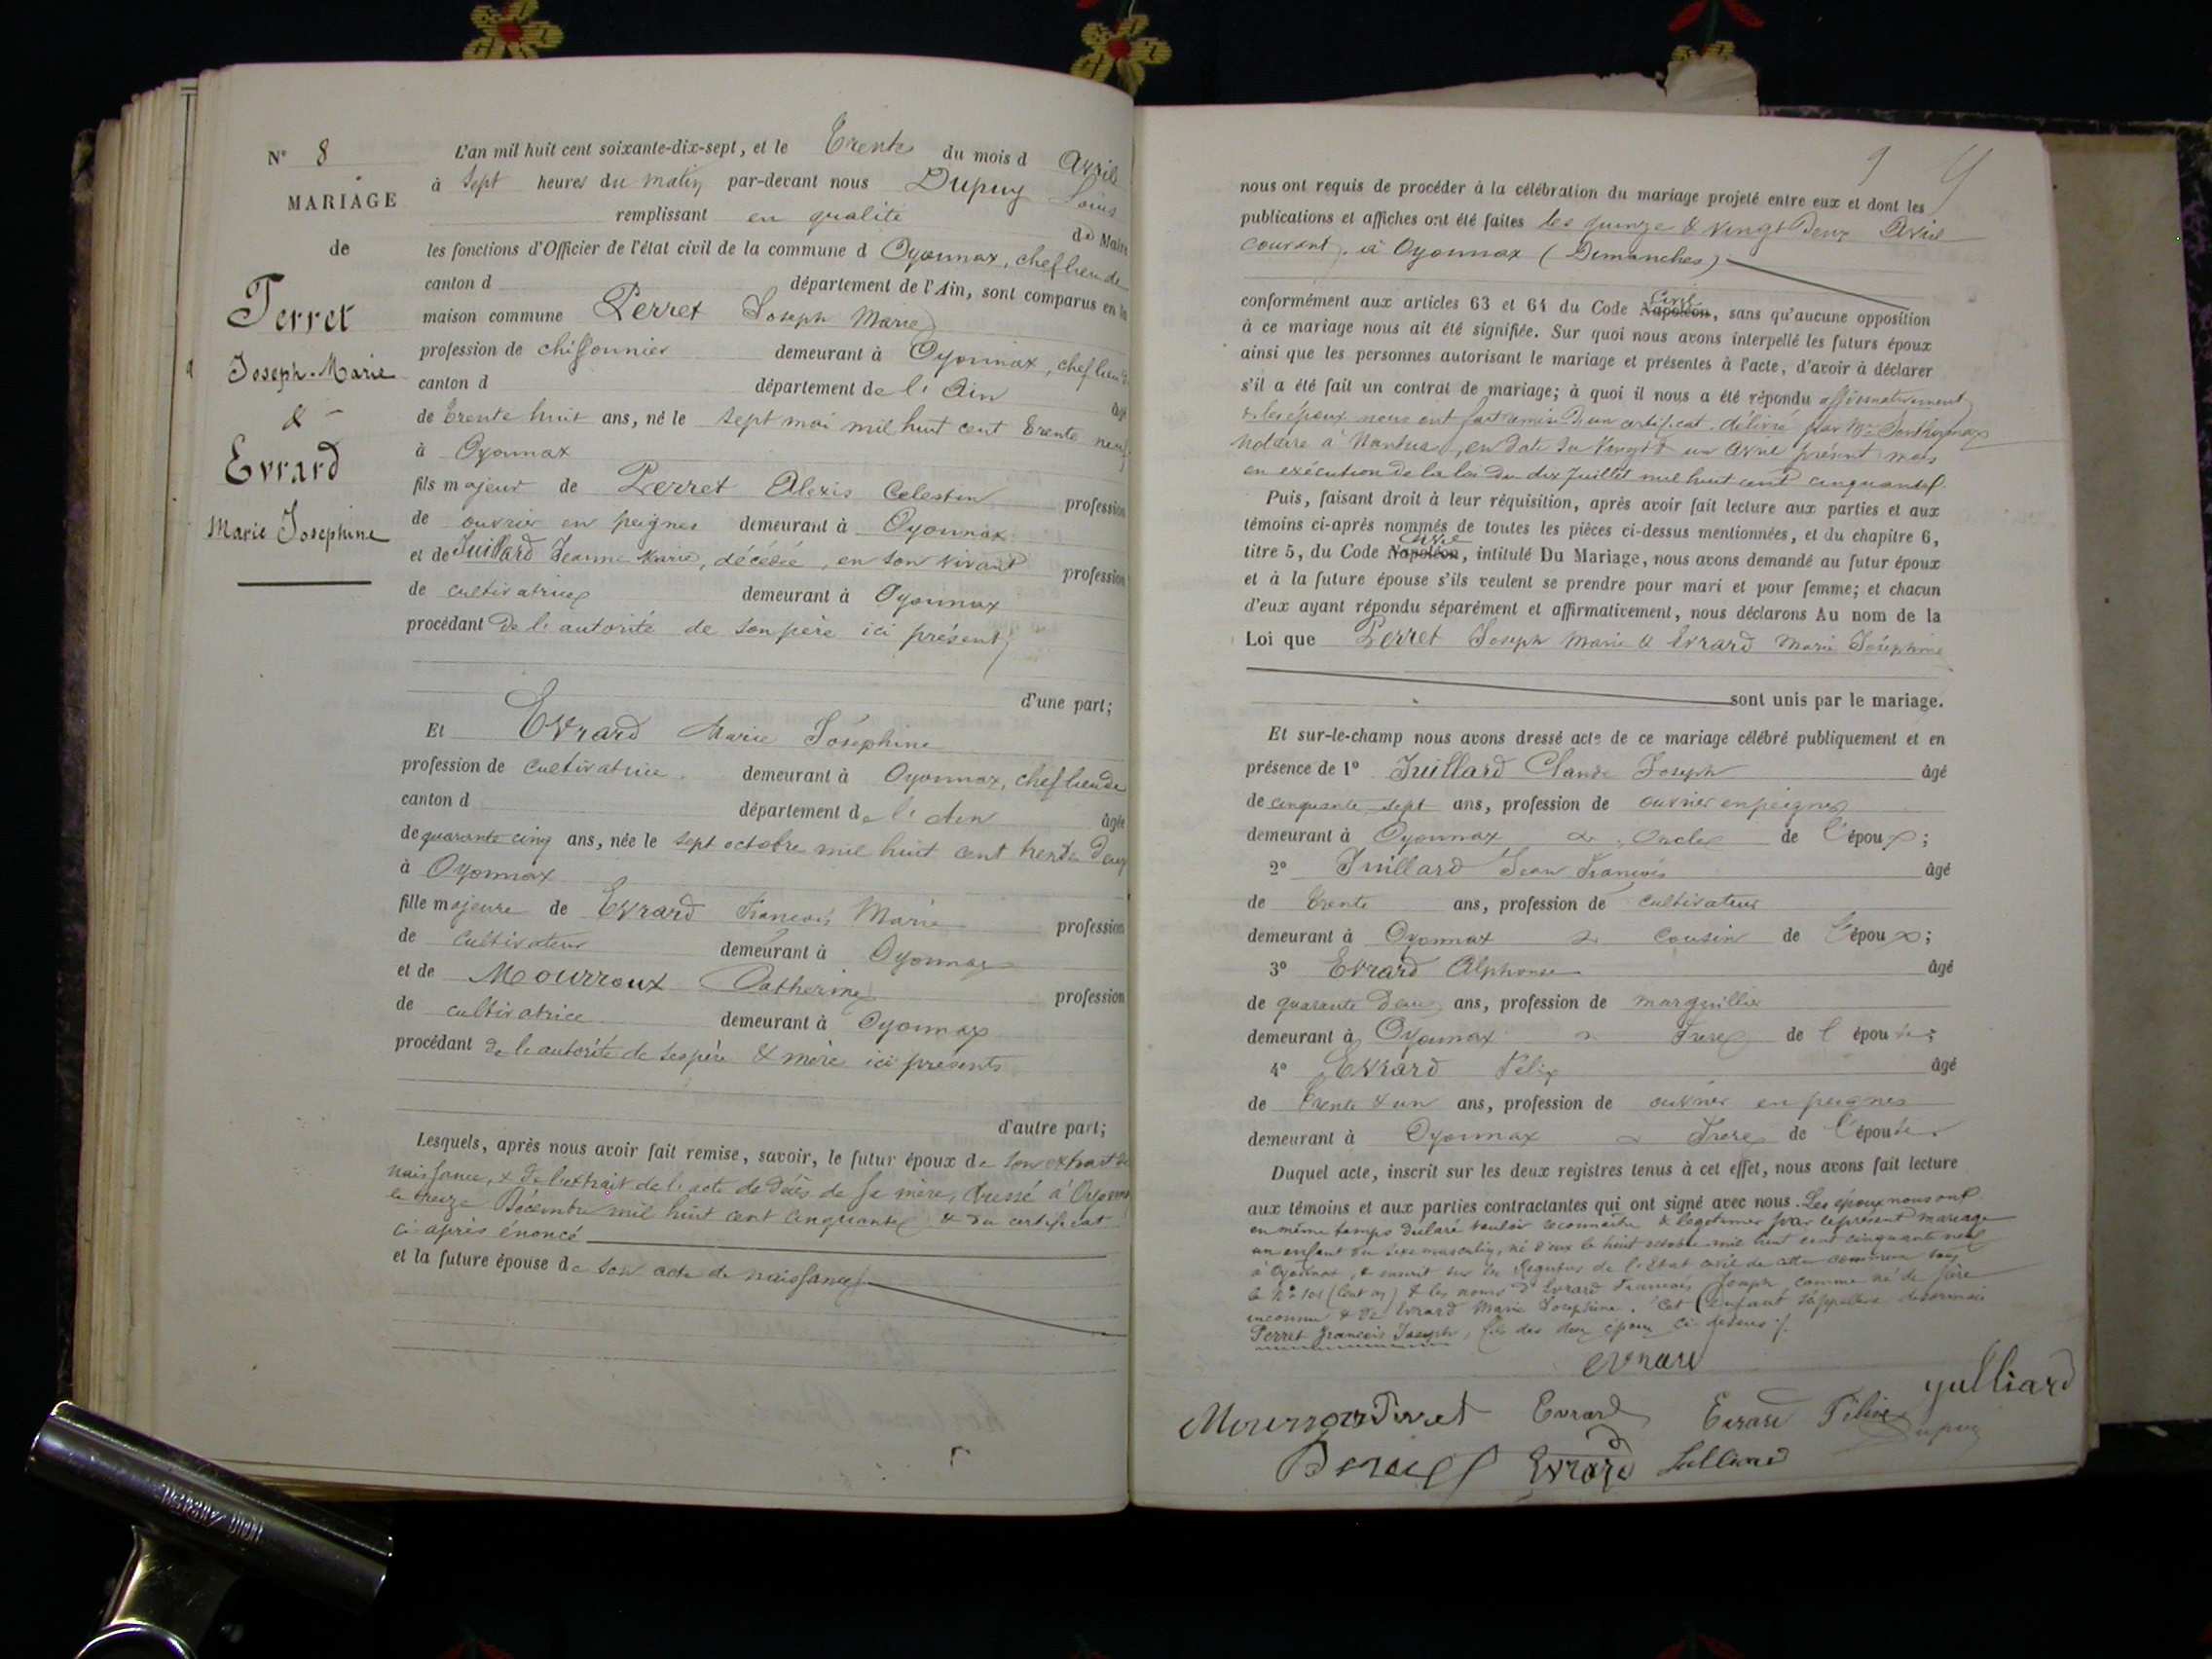 N° 8
MARIAGE
de
Perret
Joseph-Marie
&
Evrard
Marie Josephine
L'an mil huit cent soixante-dix-sept, et le Trente du mois d Avril
à Sept heures du matin par-devant nous Dupuy Louis
remplissant en qualité de Maire
les fonctions d'Officier de l'état civil de la commune d Oyonnax, chef lieu de
canton d département de l'Ain, sont comparus en la
maison commune Perret Joseph Marie
profession de chiffonnier demeurant à Oyonnax, chef lieu de
canton d département de l'Ain âgé
de trente huit ans, né le sept mai mil huit cent trente neuf
à Oyonnax
fils majeur de Perret Alexis Celestin profession
de ouvrier en peignes demeurant à Oyonnax
et de Juillard Jeanne Marie, décédée, en son vivant profession
de cultivatrice demeurant à Oyonnax
procédant de l'autorité de son père ici présent
d'une part;
Et Evrard Marie Joséphine
profession de cultivatrice demeurant à Oyonnax, chef lieu de
canton d département de l'Ain âgée
de quarante cinq ans, née le sept octobre mil huit cent trente deux
à Oyonnax
fille majeure de Evrard François Marie profession
de cultivateur demeurant à Oyonnax
et de Mourroux Catherine profession
de cultivatrice demeurant à Oyonnax
procédant de l'autorité de ses père & mère ici présents
d'autre part;
Lesquels, après nous avoir fait remise, savoir, le futur époux de son extrait de
naissance, & de l'extrait de l'acte de décès de sa mère, dressé à Oyonnax
le treize Décembre mil huit cent cinquante & du certificat
ci après énoncé
et la future épouse de son acte de naissance
9
nous ont requis de procéder à la célébration du mariage projeté entre eux et dont les
publications et affiches ont été faites les quinze & vingt deux Avril
courant, à Oyonnax (Dimanches)
conformément aux articles 63 et 64 du Code Napoléon Civil, sans qu'aucune opposition
à ce mariage nous ait été signifiée. Sur quoi nous avons interpellé les futurs époux
ainsi que les personnes autorisant le mariage et présentes à l'acte, d'avoir à déclarer
s'il a été fait un contrat de mariage; à quoi il nous a été répondu affirmativement
& les époux nous ont fait remise d'un certificat délivré par Me
notaire à Nantua, en date du vingt & un Avril présent mois
en exécution de la loi du dix Juillet mil huit cent cinquante
Puis, faisant droit à leur réquisition, après avoir fait lecture aux parties et aux
témoins ci-après nommés de toutes les pièces ci-dessus mentionnées, et du chapitre 6,
titre 5, du Code Napoléon Civil, intitulé Du Mariage, nous avons demandé au futur époux
et à la future épouse s'ils veulent se prendre pour mari et pour femme; et chacun
d'eux ayant répondu séparément et affirmativement, nous déclarons Au nom de la
Loi que Perret Joseph Marie & Evrard Marie Joséphine
sont unis par le mariage.
Et sur-le-champ nous avons dressé acte de ce mariage célébré publiquement et en
présence de 1° Juillard Claude Joseph âgé
de cinquante sept ans, profession de ouvrier en peignes
demeurant à Oyonnax oncle de l'époux;
2° Juillard Jean François âgé
de trente ans, profession de cultivateur
demeurant à Oyonnax cousin de l'époux;
3° Evrard Alphonse âgé
de quarante deux ans, profession de marguillier
demeurant à Oyonnax frere de l'épouse;
4° Evrard Félix âgé
de trente & un ans, profession de ouvrier en peignes
demeurant à Oyonnax frere de l'épouse.
Duquel acte, inscrit sur les deux registres tenus à cet effet, nous avons fait lecture
aux témoins et aux parties contractantes qui ont signé avec nous. Les époux nous ont
en même temps déclaré vouloir reconnaître & légitimer par le présent mariage
un enfant du sexe masculin, né d'eux le huit octobre mil huit cent cinquante neuf
à Oyonnax, & inscrit sur les Registres de l'état civil de cette commune sous
le N° 101 (Cent un) & les noms d'Evrard François Joseph comme né de père
inconnu & de Evrard Marie Josephine. Cet enfant s'appellera désormais
Perret François Joseph, fils des deux époux ci-dessus
evrard
Perret Evrard Evrard Félix Dupuy
Evrard